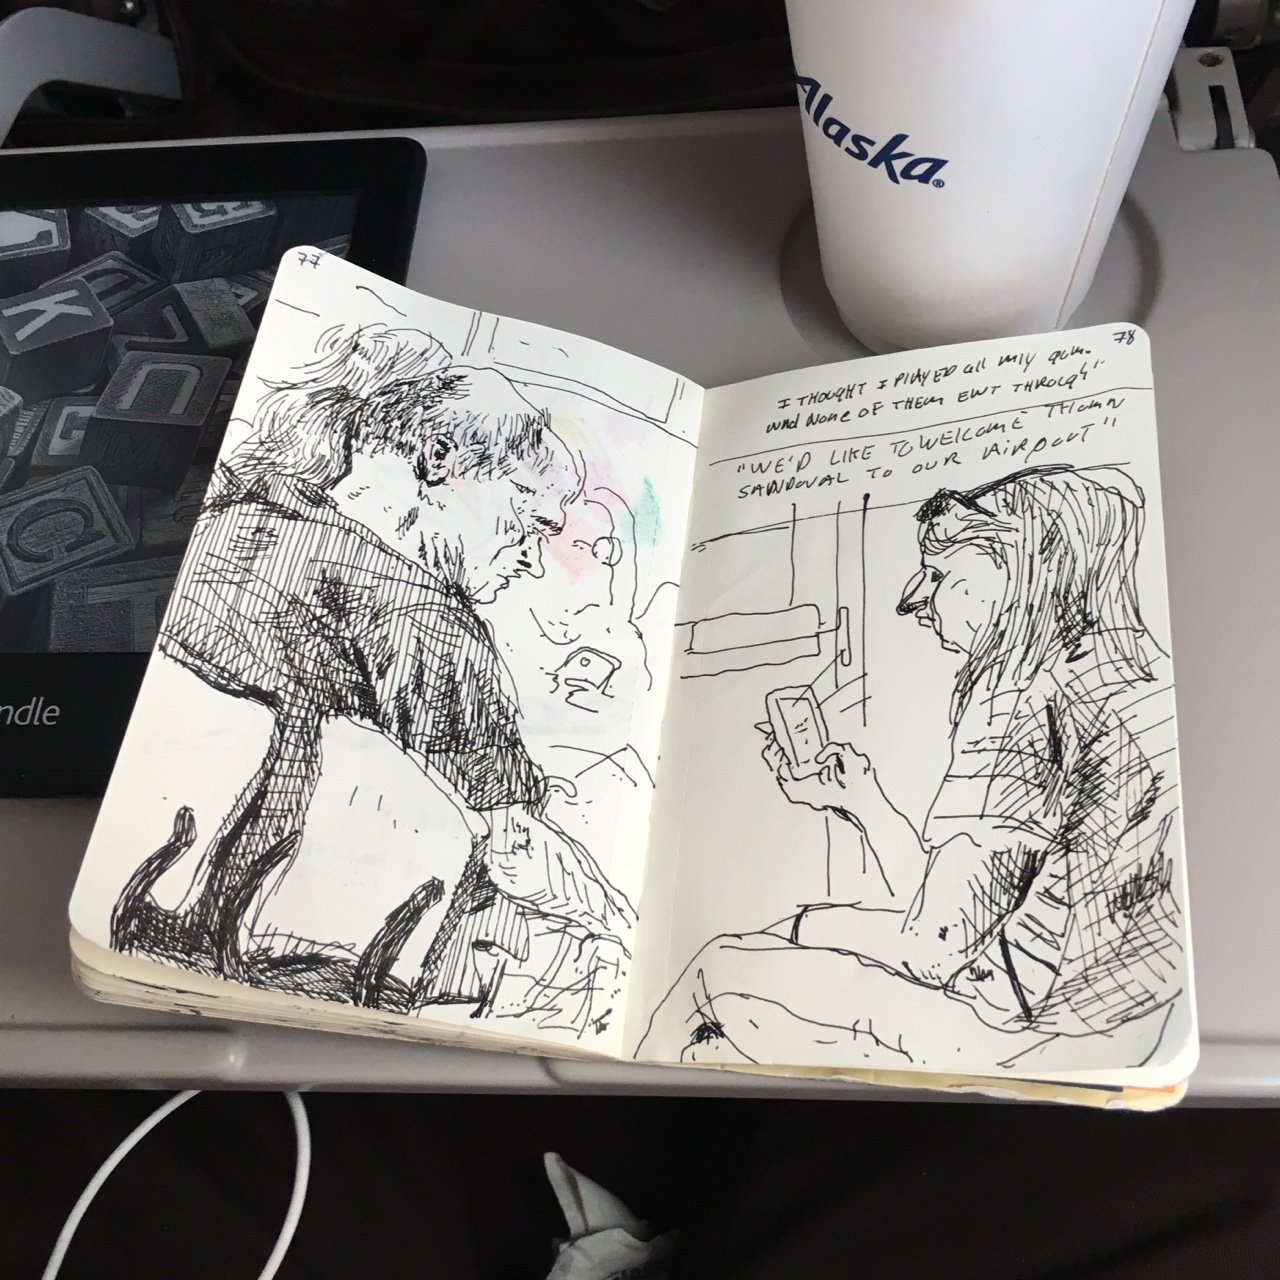 Alaska®
K
C
G
ndle
77
78
I THOUGHT I PLAYED all my
and NONE OF THEM WENT THROUGH"
"WE'D LIKE TO WELCOME
SANDOVAL TO OUR AIRPORT"